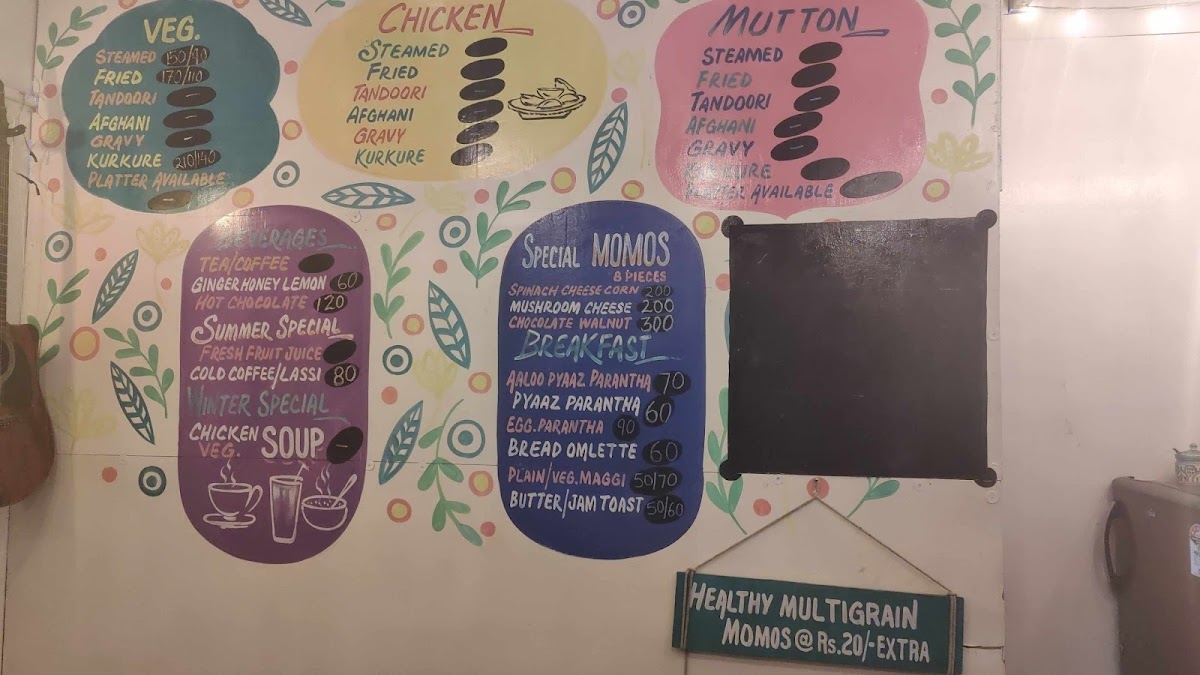 VEG.
STEAMED 150/90
FRIED 170/110
TANDOORI -
AFGHANI -
GRAVY -
KURKURE 210/140
PLATTER AVAILABLE -
CHICKEN
STEAMED
FRIED
TANDOORI
AFGHANI
GRAVY
KURKURE
MUTTON
STEAMED
FRIED
TANDOORI -
AFGHANI -
GRAVY -
KURKURE
PLATTER AVAILABLE -
BEVERAGES
TEA/COFFEE
GINGER HONEY LEMON 60
HOT CHOCOLATE 120
SUMMER SPECIAL
FRESH FRUIT JUICE
COLD COFFEE/LASSI 80
WINTER SPECIAL
CHICKEN
VEG. SOUP -
SPECIAL MOMOS
8 PIECES
SPINACH CHEESE CORN 200
MUSHROOM CHEESE 200
CHOCOLATE WALNUT 300
BREAKFAST
AALOO PYAAZ PARANTHA 70
PYAAZ PARANTHA 60
EGG. PARANTHA 90
BREAD OMLETTE 60
PLAIN/VEG. MAGGI 50/70
BUTTER/JAM TOAST 50/60
HEALTHY MULTIGRAIN
MOMOS @ RS.20/-EXTRA